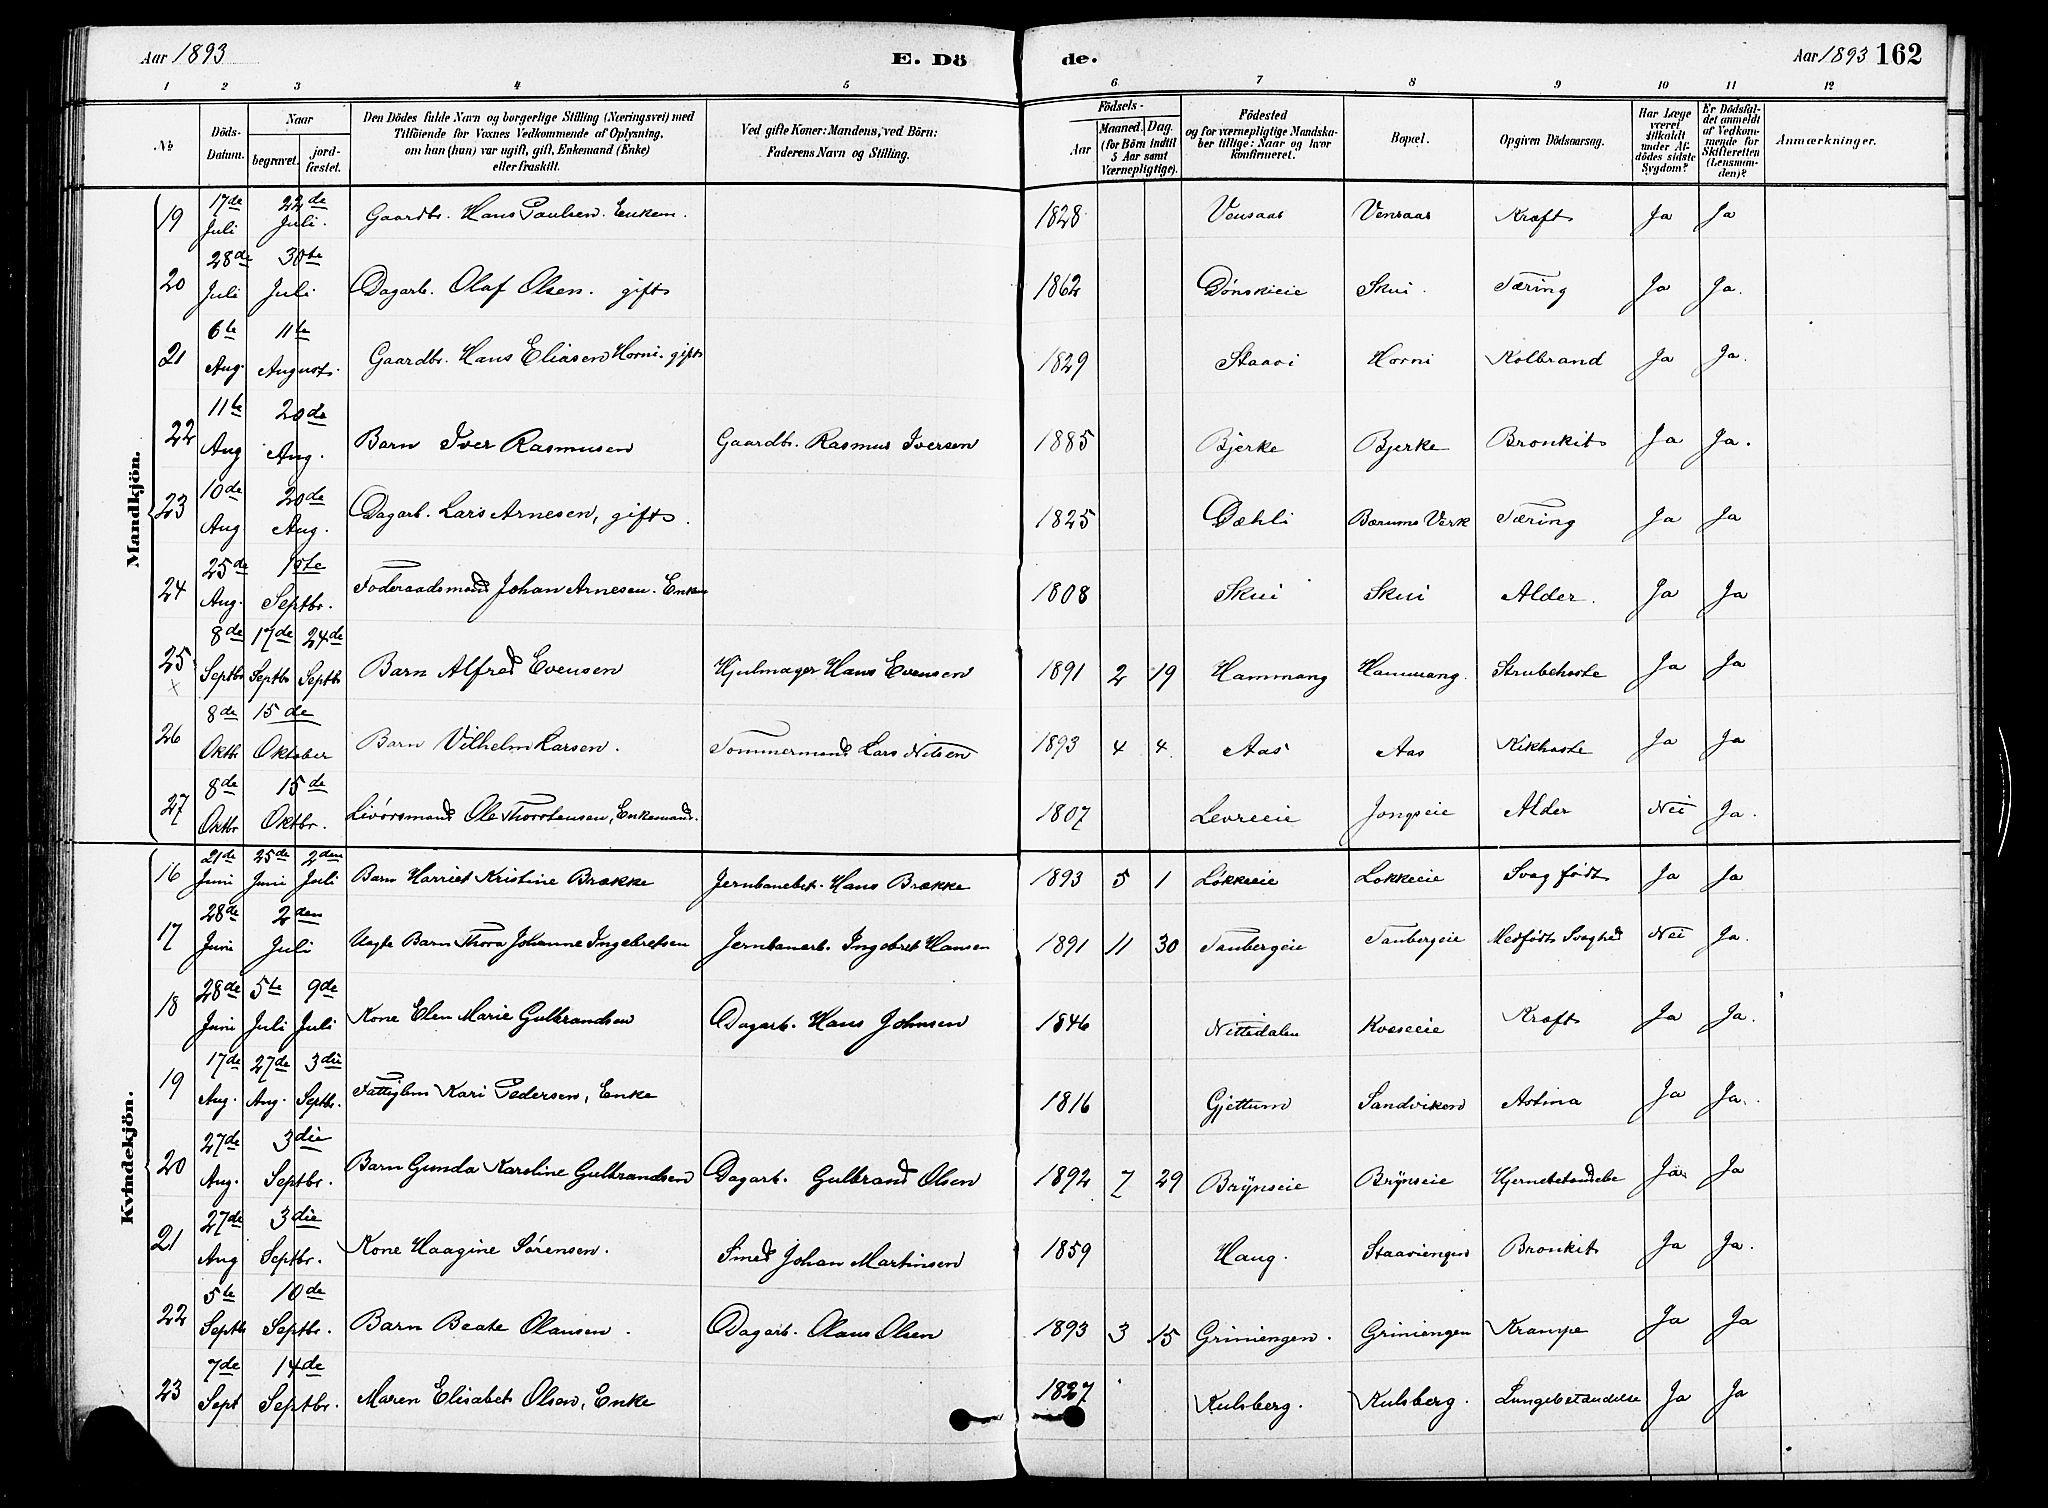 Aar 1893 E. Dö de. Aar 1893 162
1 2 3 4 5 6 7 8 9 10 11 12
№ Döds-Datum. Naar begravet. jordfæstet. Den Dödes fulde Navn og borgerlige Stilling (Næringsvei) med Tilföiende for Voxnes Vedkommende af Oplysning, om han (hun) var ugift, gift, Enkemand (Enke) eller fraskilt. Ved gifte Koner: Mandens, ved Börn: Faderens Navn og Stilling. Födsels- Aar Maaned. Dag. (for Börn indtil 5 Aar samt Værnepligtige). Födested og for værnepligtige Mandskaber tillige: Naar og hvor konfirmeret. Bopæl. Opgiven Dödsaarsag. Har Læge været tilkaldt under Afdödes sidste Sygdom? Er Dödsfaldet anmeldt af Vedkommende for Skifteretten (Lensmanden)? Anmærkninger.
Mandkjön.
19 17de Juli 22de Juli. Gaardbr. Hans Paulsen. Enkem. 1828 Vensaas Vensaas Kræft Ja Ja
20 28de Juli 30te Juli Dagarb. Olaf Olsen. gift 1862 Dønskieie Skui. Tæring Ja Ja.
21 6te Aug. 11te August. Gaardbr. Hans Eliasen Horni. gift 1829 Staavi Horni Kolbrand Ja Ja.
22 11te Aug 20de Aug. Barn Iver Rasmusen Gaardbr. Rasmus Iversen 1885 Bjerke Bjerke Bronkit Ja Ja.
23 10de Aug 20de Aug. Dagarb. Lars Arnesen, gift. 1825 Dæhli Bærums Verk Tæring Ja Ja
24 25de Aug. 1ste Septbr. Foderaadsmand Johan Arnesen. Enkem 1808 Skui Skui Alder. Ja Ja
25 8de Septbr 17de Septbr 24de Septbr Barn Alfred Evensen Hjulmager Hans Evensen 1891 2 19 Hammang Hammang. Strubehoste Ja Ja
26 8de Oktbr 15de Oktober Barn Vilhelm Larsen. Tømmermand Lars Nilsen 1893 4 4 Aas Aas Kikhoste Ja Ja
27 8de Oktbr 15de Oktbr. Livørsmand Ole Thorstensen, Enkemand. 1807 Levreeie Jongseie Alder Nei Ja.
Kvindekjön.
16 21de Juni 25de Juni 2den Juli Barn Harriet Kristine Brække Jernbanebet. Hans Brække 1893 5 1 Løkkeeie Løkkeeie Svag født Ja Ja
17 28de Juni 2den Juli Uægte Barn Thora Johanne Ingebretsen Jernbanarb. Ingebret Hansen 1891 11 30 Tanbergeie Tanbergeie Medfødt Svaghed Nei Ja.
18 28de Juni 5te Juli 9de Juli Kone Elen Marie Gulbrandsen Dagarb. Hans Johnsen 1846 Nittedalen Kræft Ja Ja.
19 17de Aug. 27de Aug. 3die Septbr. Fattiglem Kari Pedersen, Enke 1816 Gjettum Sandviken Astma Ja Ja.
20 27de Aug. 3die Septbr. Barn Gunda Karoline Gulbrandsen Dagarb. Gulbrand Olsen 1892 7 29 Brynseie Brynseie Hjernebetændelse Ja Ja
21 27de Aug 3die Septbr. Kone Haagine Sørensen. Smed Johan Martinsen 1859 Haug. Staaviengen Bronkit Ja Ja.
22 5te Septbr 10de Septbr. Barn Beate Olausen. Dagarb. Olaus Olsen 1893 3 15 Griniengen. Griniengen Krampe Ja Ja
23 7de Sept 14de Septbr. Maren Elisabet Olsen, Enke 1827 Kulsberg. Kulsberg. Lungebetændelse Ja Ja